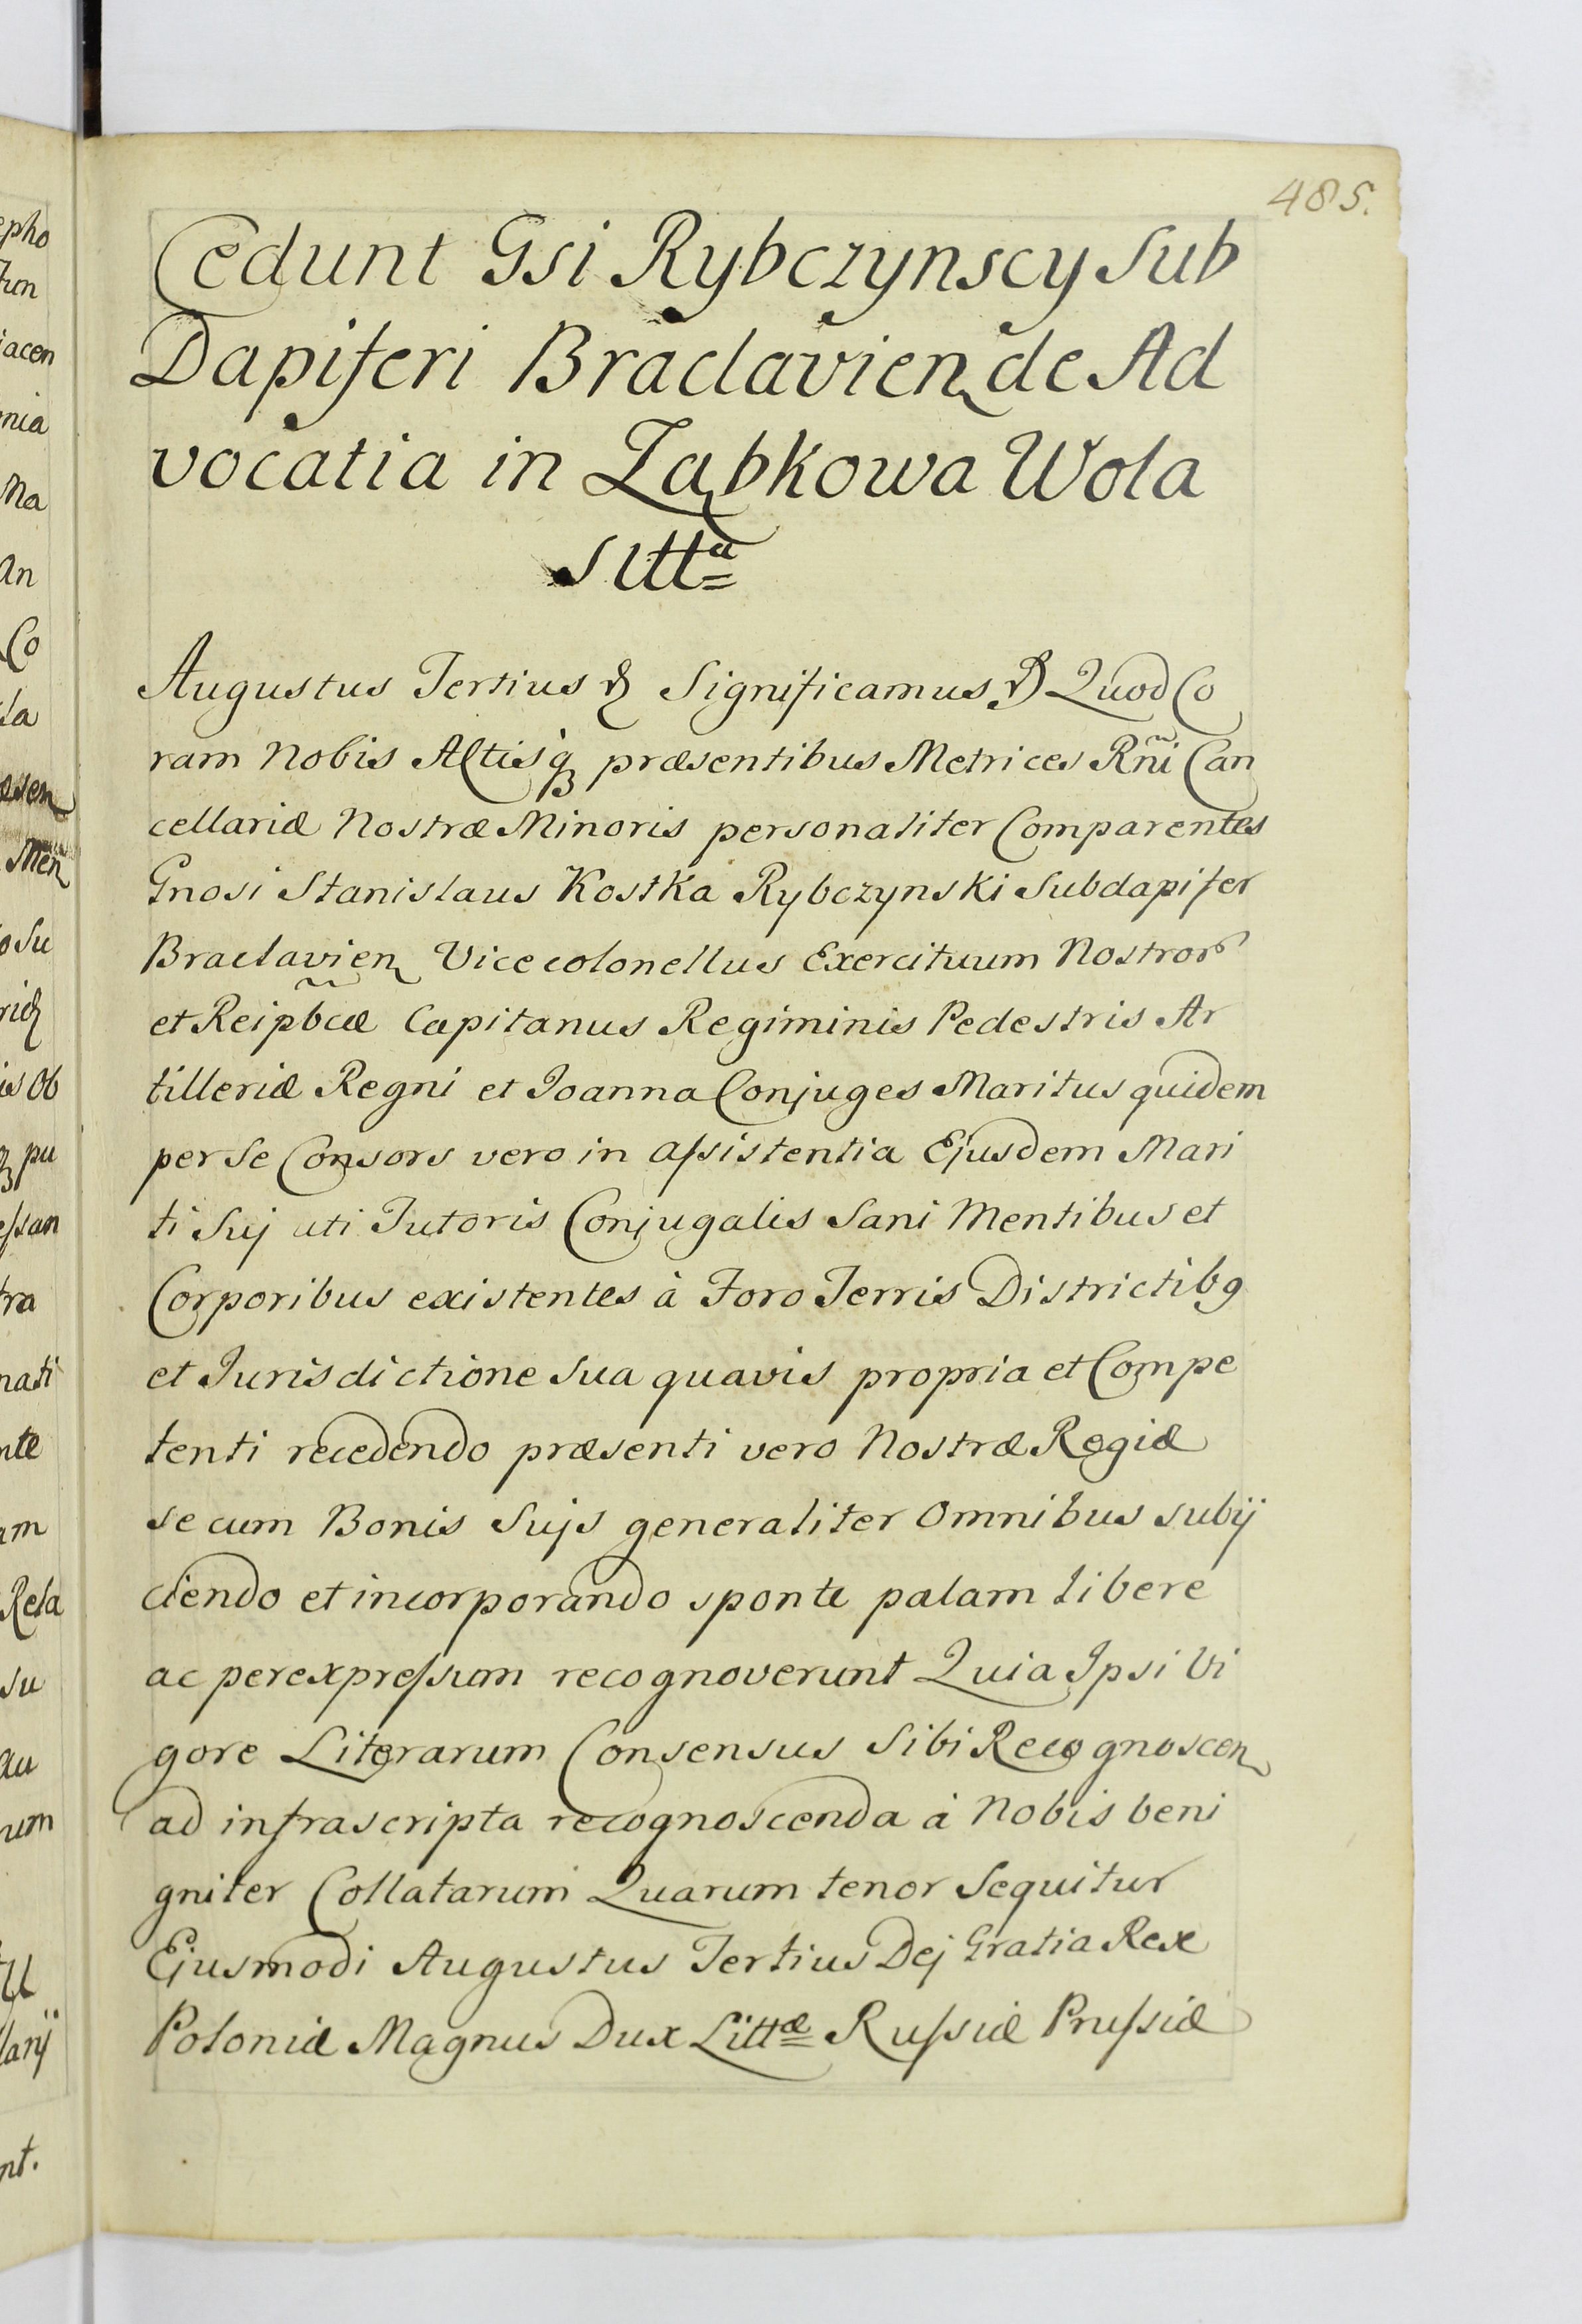 485.
Cedunt Gsi Rybczynscy Sub
Dapiferi Braclavien de Ad
vocatia in Ząbkowa Wola
Sitta
Augustus Tertius & Significamus & Quod Co
ram Nobis Actisq præsentibus Metrices Rñi Can
cellariæ Nostræ Minoris personaliter Comparentes
Gnosi Stanislaus Kostka Rybczynski Subdapifer
Braclavien Vice colonellus Exercituum Nostror
et Reipbcæ Capitanus Regiminis Pedestris Ar
tilleriæ Regni et Joanna Conjuges Maritus quidem
per Se Consors vero in aſsistentia Ejusdem Mari
ti Suj uti Tutoris Conjugalis Sani Mentibus et
Corporibus existentes à Foro Terris Districtib9
et Jurisdictione Sua quavis propria et Compe
tenti recedendo præsenti vero Nostræ Regiæ
se cum Bonis Sujs generaliter Omnibus subij
ciendo et incorporando sponte palam libere
ac per expreſsum recognoverunt Quia Ipsi Vi
gore Literarum Consensus Sibi Recognoscen
ad infrascripta recognoscenda à Nobis beni
gniter Collatarum Quarum tenor Sequitur
Ejusmodi Augustus Tertius Dej Gratia Rex
Poloniæ Magnus Dux Littæ Ruſsiæ Pruſsiæ